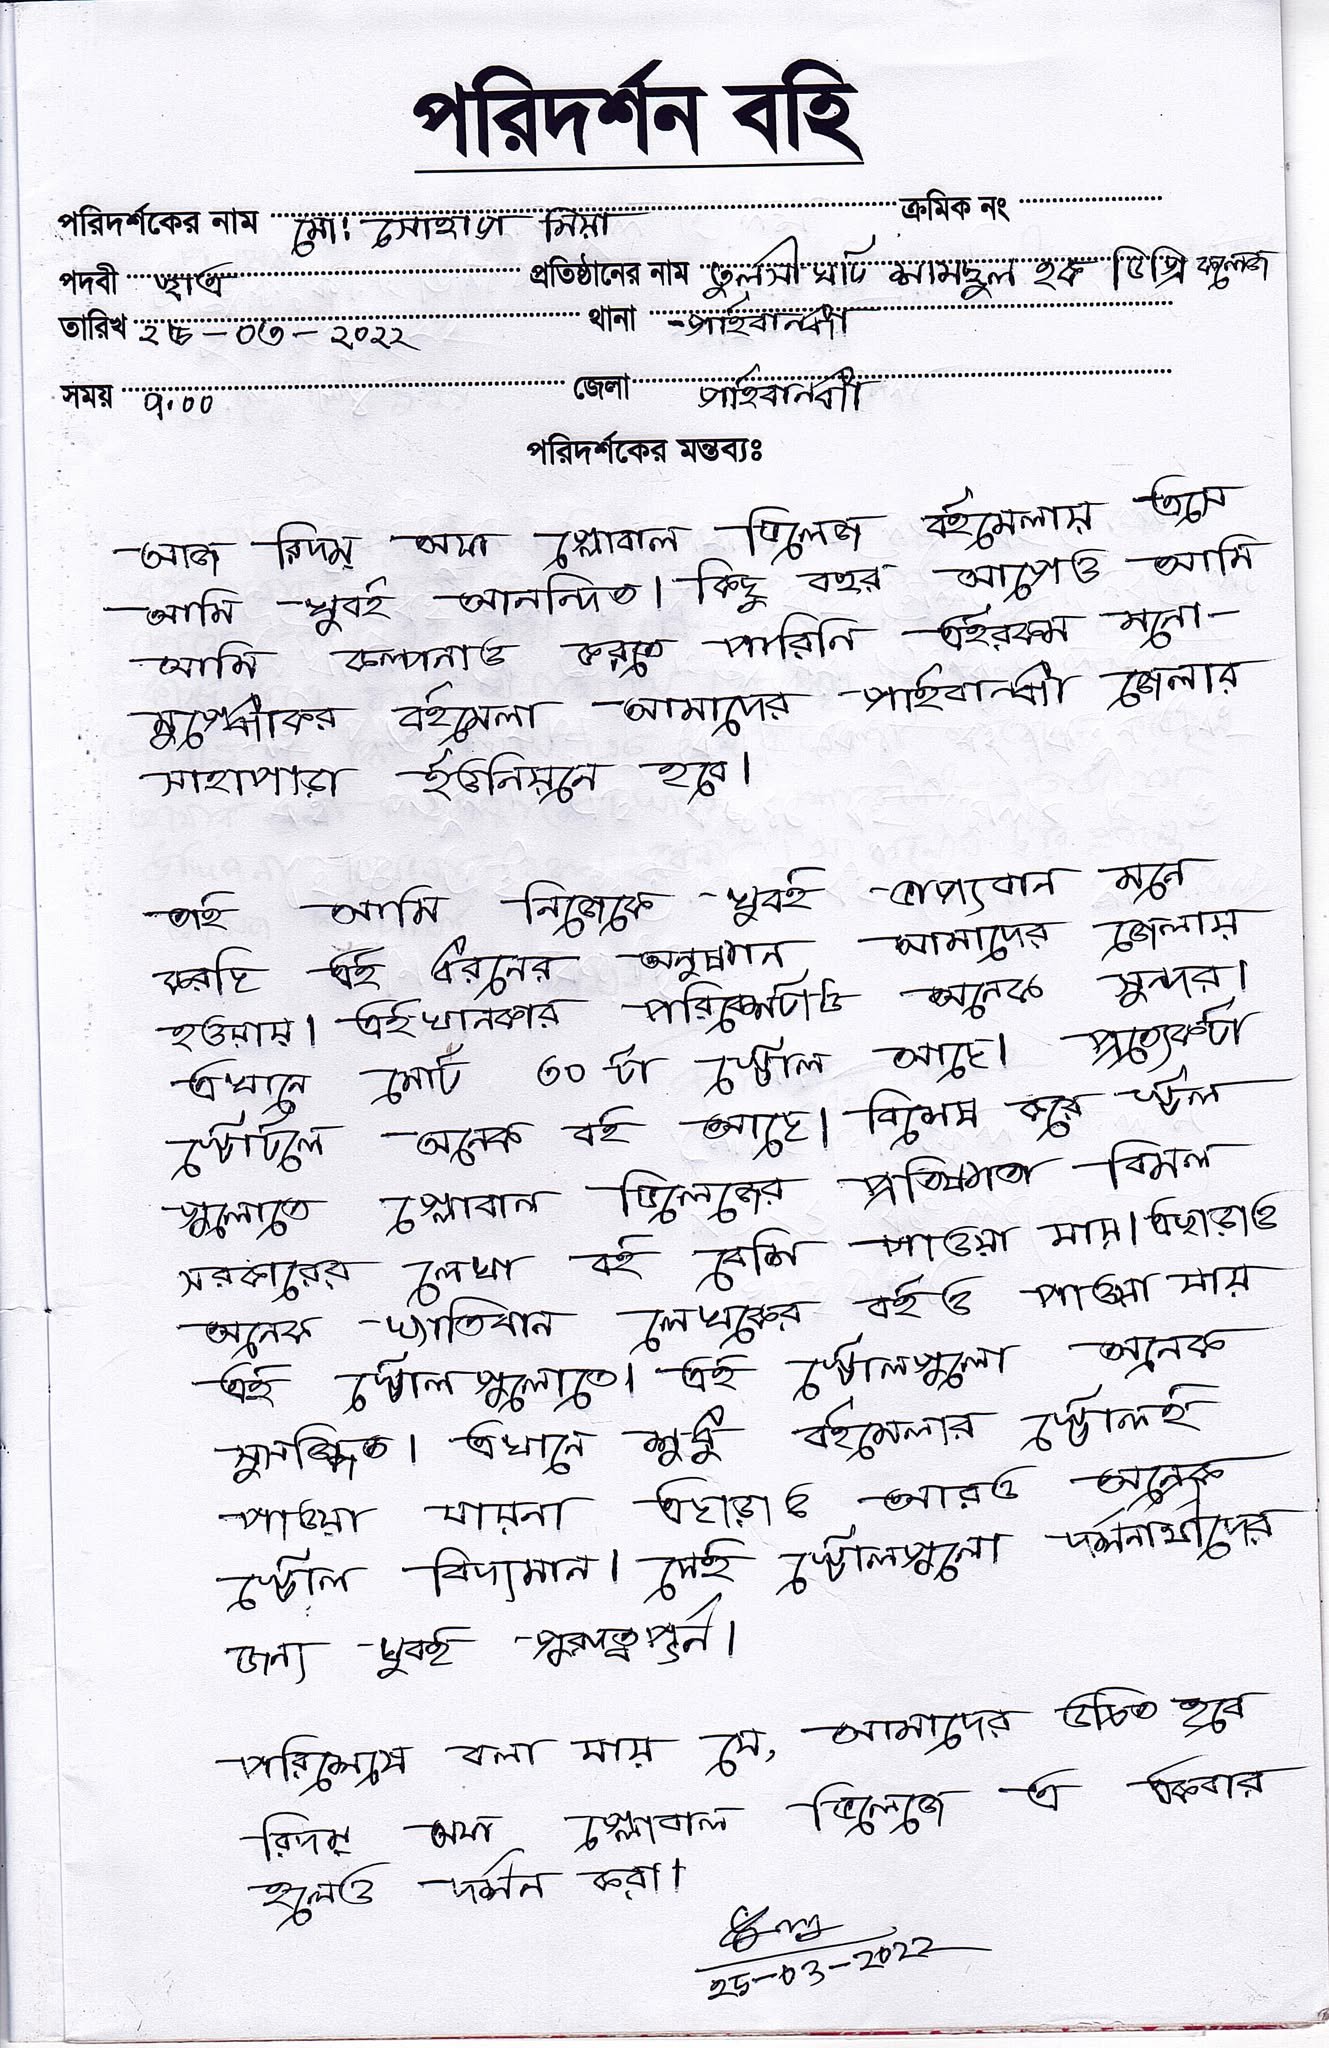 পরিদর্শন বহি
পরিদর্শকের নাম মো: সোহাগ মিয়া ক্রমিক নং
পদবী ছাত্র প্রতিষ্ঠানের নাম তুলসীঘাট শামছুল হক ডিগ্রি কলেজ
তারিখ ২৫-০৩-২০২২ থানা গাইবান্ধা
সময় ৭.০০ জেলা গাইবান্ধা
পরিদর্শকের মন্তব্যঃ
আজ রিদম্ অযা গ্লোবাল ভিলেজ বইমেলায় এসে
আমি খুবই আনন্দিত। কিছু বছর আগেও আমি
আমি কল্পনাও করতে পারিনি এইরকম মনো-
মুগ্ধোকর বইমেলা আমাদের গাইবান্ধা জেলার
সাহাপাড়া ইউনিয়নে হবে।
তাই আমি নিজেকে খুবই ভাগ্যবান মনে
করছি এই ধরনের অনুষ্ঠান আমাদের জেলায়
হওয়ায়। এইখানকার পরিবেশটাও অনেক সুন্দর।
এখানে মোট ৩০ টা স্টোল আছে। প্রত্যেকটা
স্টোটলে অনেক বই আছে। বিশেষ করে স্টল
গুলোতে গ্লোবাল ভিলেজের প্রতিষ্ঠাতা বিমল
সরকারের লেখা বই বেশি পাওয়া যায়। এছাড়াও
অনেক খ্যাতিমান লেখকের বইও পাওয়া যায়
এই স্টোলগুলোতে। এই স্টোলগুলো অনেক
সুসজ্জিত। এখানে শুধু বইমেলার স্টোলই
পাওয়া যায়না এছাড়াও আরও অনেক
স্টোল বিদ্যমান। সেই স্টোলগুলো দর্শনার্থীদের
জন্য খুবই গুরুত্বপূর্ন।
পরিশেষে বলা যায় যে, আমাদের উচিত হবে
রিদম্ অযা গ্লোবাল ভিলেজে এ একবার
হলেও দর্শন করা।
২৫-০৩-২০২২